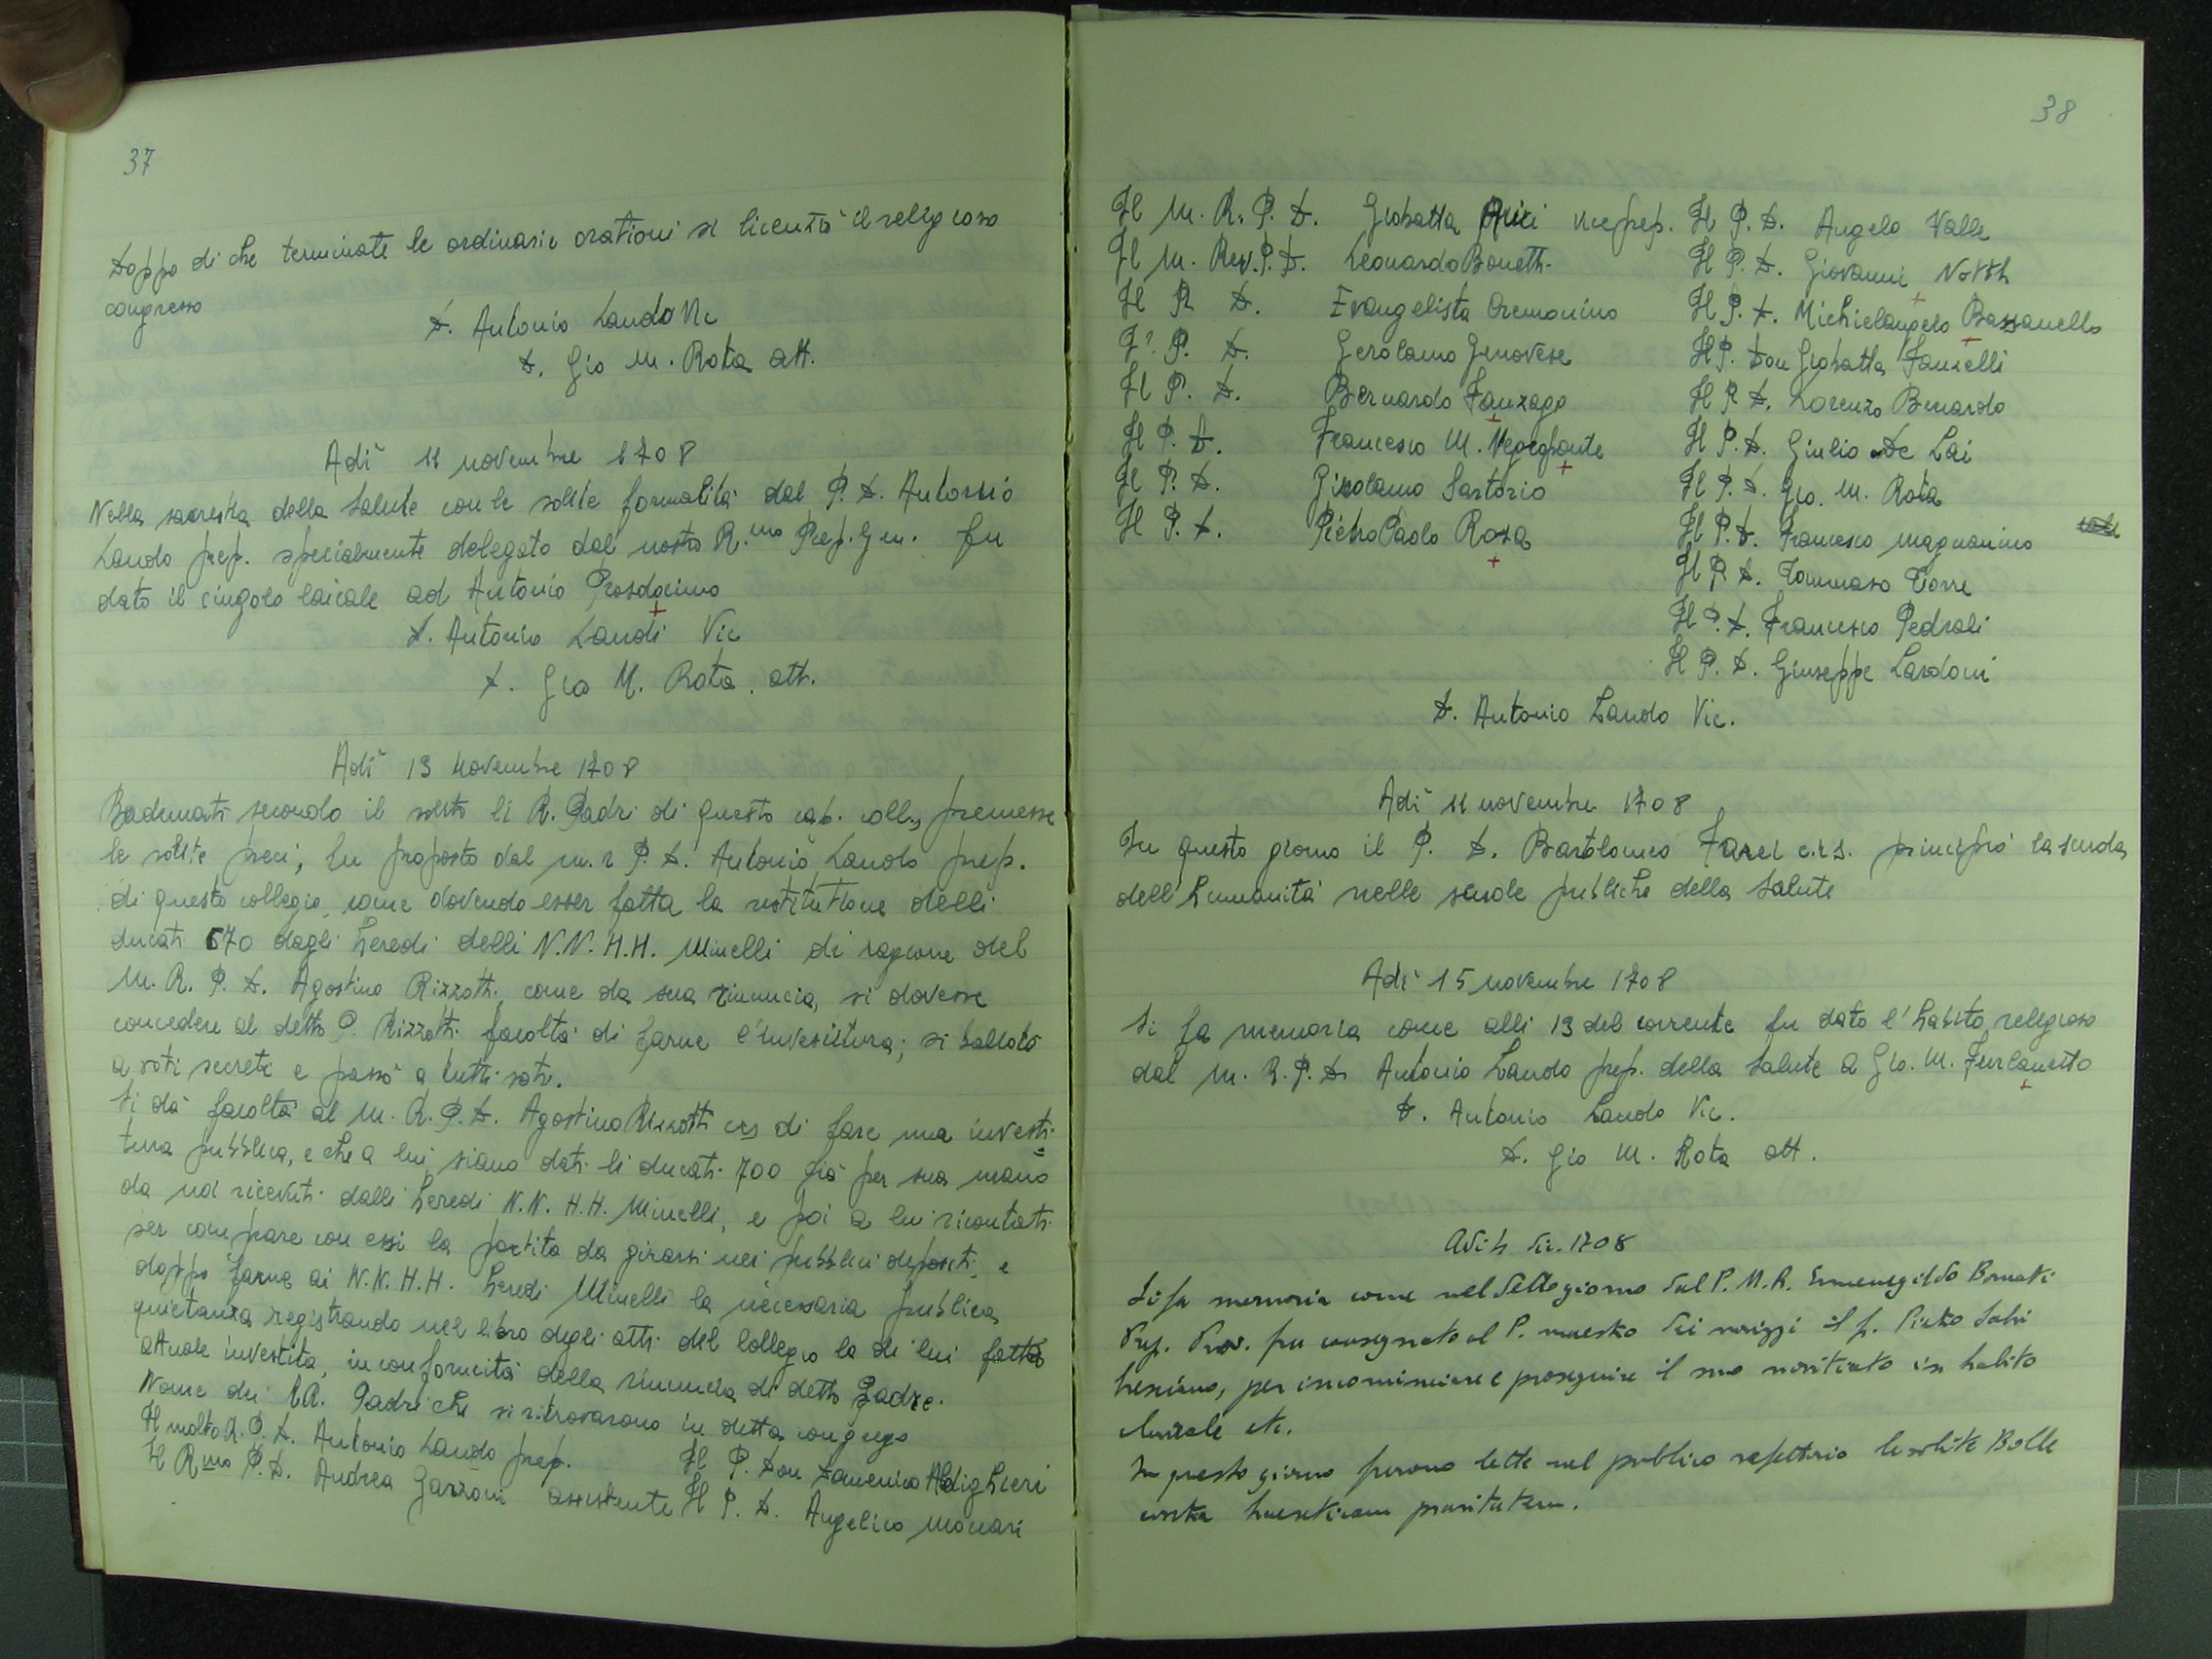 37
Doppo di che terminate le ordinarie orationi si licentiò il religioso
congresso
D. Antonio Lando Vic
D. Gio M. Rota att.
Adi 11 novembre 1708
Nella sacrestia della Salute con le solite formalità dal P. D. Antonio
Lando prep. specialmente delegato dal nostro R.mo Prep. Gen. fu
dato il cingolo laicale ad Antonio Prosdocimo
D. Antonio Landi Vic
D. Gio M. Rota. att.
Adi 13 novembre 1708
Radunati secondo il solito li R. Padri di questo cap. coll., premesse
le solite preci, fu proposto dal m. r P. D. Antonio Lando prep.
di questo collegio, come dovendo esser fatta la restitutione delli
ducati 670 dagli heredi delli N.N. H.H. Minelli di ragione del
M. R. P. D. Agostino Rizzotti, come da sua rinuncia, si dovesse
concedere al detto P. Rizzotti facoltà di farne l'investitura; si ballotò
a voti secreti e passò a tutti voti.
Si dà facoltà al M. R. P. D. Agostino Rizzotti crs di fare una investi
tura pubblica, e che a lui siano dati li ducati 700 già per sua mano
da noi ricevuti dalli heredi N.N. H.H. Minelli, e poi a lui ricontati
per comprare con essi la partita da girarsi nei pubblici depositi, e
doppo farne ai N.N. H.H. heredi Minelli la necessaria publica
quietanza registrando nel libro degli atti del collegio la di lui fatta
attuale investita, in conformità della rinuncia di detto Padre.
Nome dei RR. Padri che si ritrovarono in detta congrego
Il molto R. P. D. Antonio Lando prep. Il P. Don Domenico Aldighieri
Il R.mo P. D. Andrea Garzoni assistente Il P. D. Angelico Monari
38
Il M. R. P. D. Giobatta Arici viceprep. Il P. D. Angelo Valle
Il M. Rev. P. D. Leonardo Bonetti Il P. D. Giovanni Votth
Il P. D. Evangelista Cremonino Il P. D. Michielangelo Bassanello
Il P. D. Gerolamo Genovese Il P. Don Giobatta Fanzelli
Il P. D. Bernardo Fanzago Il P. D. Lorenzo Benardo
Il P. D. Francesco M. Il P. D. Giulio de Lai
Il P. D. Girolamo Sartorio Il P. D. Gio. M. Rota
Il P. D. Pietro Paolo Rosa Il P. D. Francesco Magnanino
Il P. D. Tommaso Torre
Il P. D. Francesco Pedrali
Il P. D. Giuseppe Lardoni
D. Antonio Lando Vic.
Adi 11 novembre 1708
In questo giorno il P. D. Bartolomeo c.r.s. principiò la scuola
dell'humanità nelle scuole publiche della Salute
Adi 15 novembre 1708
Si fa memoria come alli 13 del corrente fu dato l'habito religioso
dal M. R. P. D. Antonio Lando prep. della Salute a Gio. M. Furlanetto
D. Antonio Lando Vic.
D. Gio M. Rota att.
Adi dic. 1708
Si fa memoria come nel detto giorno dal P. M. R. Ermenegildo Bornati
Prep. Prov. fu consegnato al P. maestro dei novizzi il f. Pietro
per incominciare e proseguire il suo novitiato in habito
clericale etc.
In questo giorno furono lette nel publico refettorio le solite Bolle
contra haereticam pravitatem.